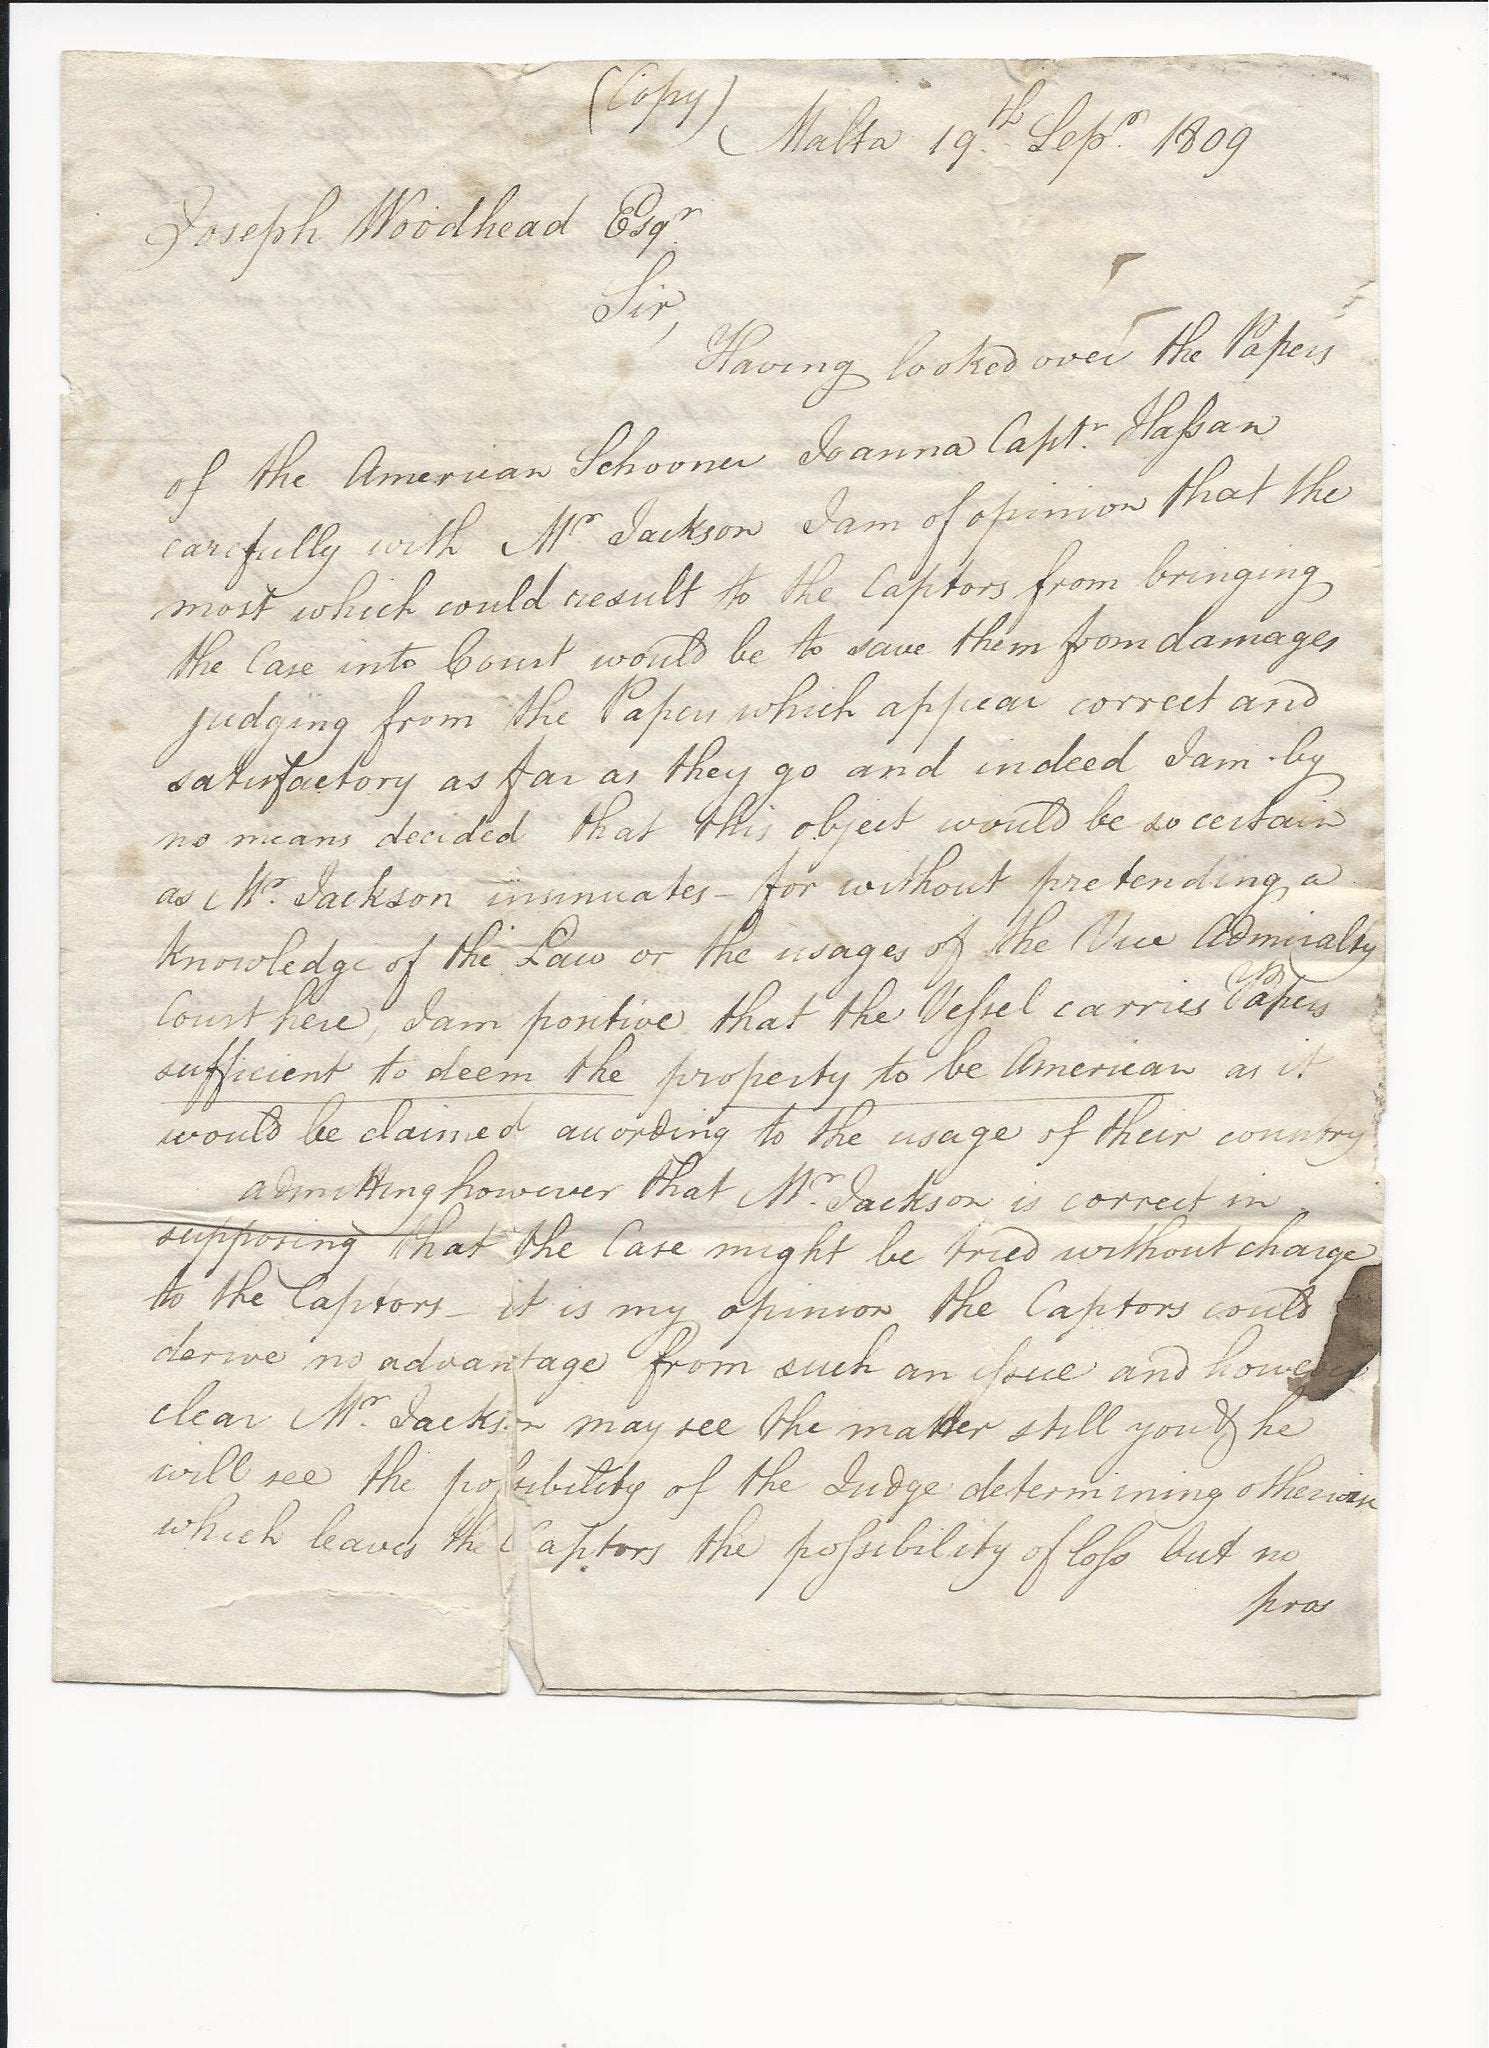 (Copy)
Malta 19th Sepr. 1809
Joseph Woodhead Esqr.
Sir,
Having looked over the Papers
of the American Schooner Joanna Captn. Haſsan
carefully with Mr. Jackson I am of opinion that the
most which could result to the Captors from bringing
the Case into Court would be to save them from damages
judging from the Papers which appear correct and
satisfactory as far as they go and indeed I am by
no means decided that this object would be so certain
as Mr. Jackson insinuates - for without pretending a
knowledge of the Law or the usages of the Vice Admiralty
Court here, I am positive that the Veſsel carries Papers
sufficient to deem the property to be American as it
would be claimed according to the usage of their country
admitting however that Mr. Jackson is correct in
supposing that the Case might be tried without charge
to the Captors - it is my opinion the Captors could
derive no advantage from such an iſsue and however
clear Mr. Jackson may see the matter still you & he
will see the poſsibility of the Judge determining otherwise
which leaves the Captors the poſsibility of loſs but no
pros